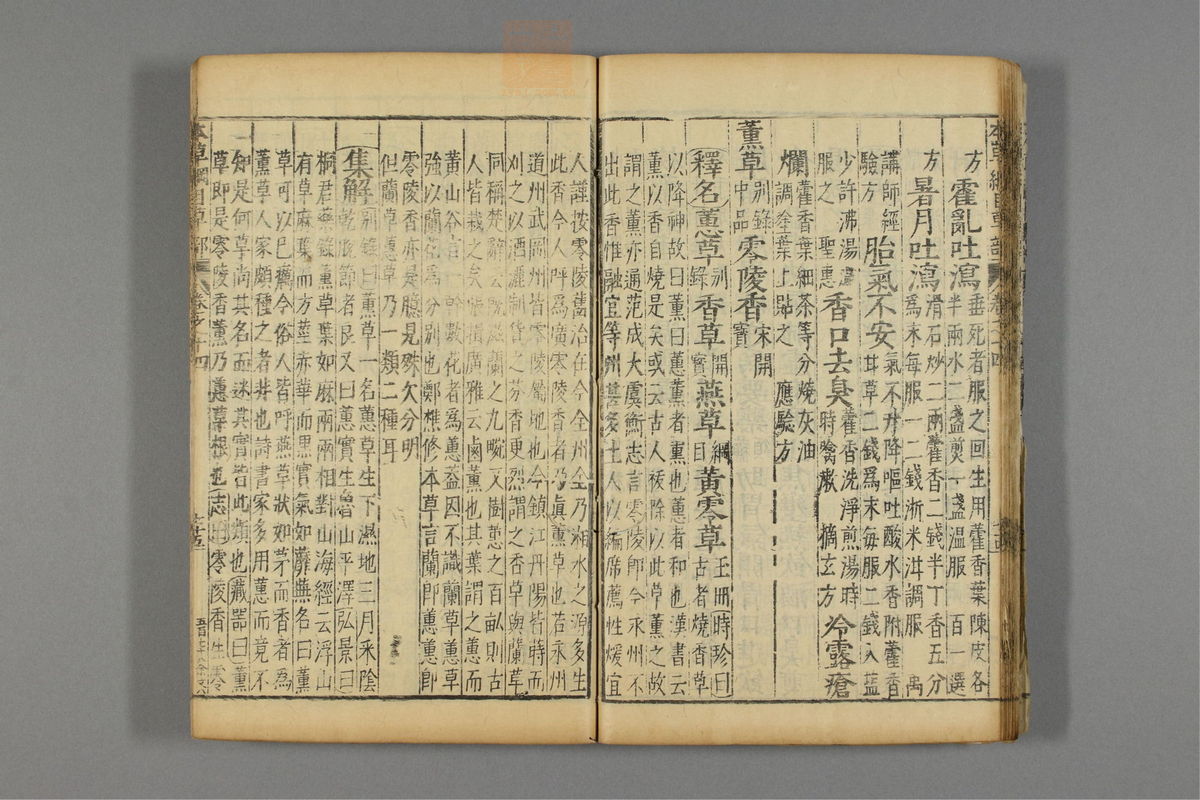 本草綱目草部 卷之十四
方霍亂吐瀉垂死者服之回生用藿香葉陳皮各
半兩水二盞煎一盞溫服 百一選
方暑月吐瀉滑石炒二兩藿香二錢半丁香五分
為末每服一二錢淅米泔調服 禹
講師經驗方胎氣不安氣不升降嘔吐酸水香附藿香
甘草二錢爲末每服二錢入藍
少許沸湯服之 聖惠香口去臭藿香洗淨煎湯時
時噙漱 摘玄方冷露瘡
爛藿香葉細茶等分燒灰油
調塗葉上貼之 應驗方
薰草別錄中品零陵香宋開寶
釋名蕙草別錄香草開寶燕草綱目黃零草玉冊時珍曰
古者燒香草
以降神故曰薰曰蕙薰者熏也蕙者和也漢書云
薰以香自燒是矣或云古人祓除以此草薰之故
謂之薰亦通范成大虞衡志言零陵即今永州不
出此香惟融宜等州甚多土人以編席薦性煖宜
人謹按零陵舊治在今全州全乃湘水之源多生
此香今人呼爲廣零陵香者乃眞薰草也若永州
道州武岡州皆零陵屬地也今鎮江丹陽皆蒔而
刈之以酒灑制貨之芬香更烈謂之香草與蘭草
同稱楚辭云既滋蘭之九畹又樹蕙之百畝則古
人皆栽之矣張揖廣雅云鹵薰也其葉謂之蕙而
黃山谷言一榦數花者爲蕙蓋因不識蘭草蕙草
強以蘭花爲分別也鄭樵修本草言蘭即蕙蕙即
零陵香亦是臆見殊欠分明
但蘭草蕙草乃一類二種耳
集解別錄曰薰草一名蕙草生下濕地三月采陰
乾脫節者良又曰蕙實生魯山平澤弘景曰
桐君藥錄薰草葉如麻兩兩相對山海經云浮山
有草麻葉而方莖赤華而黑實氣如蘼蕪名曰薰
草可以已癘今俗人皆呼燕草狀如茅而香者為
薰草人家頗種之者非也詩書家多用蕙而竟不
知是何草尚其名而迷其實皆此類也藏器曰薰
草即是零陵香薰乃蕙草根也志曰零陵香生零
本草綱目草部 卷之十四